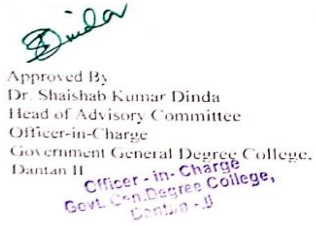 Dinda
Approved By
Dr. Shaishab Kumar Dinda
Head of Advisory Committee
Officer-in-Charge
Government General Degree College,
Dantan II
Officer - in - Charge
Govt. Gen. Degree College,
Dantan - II